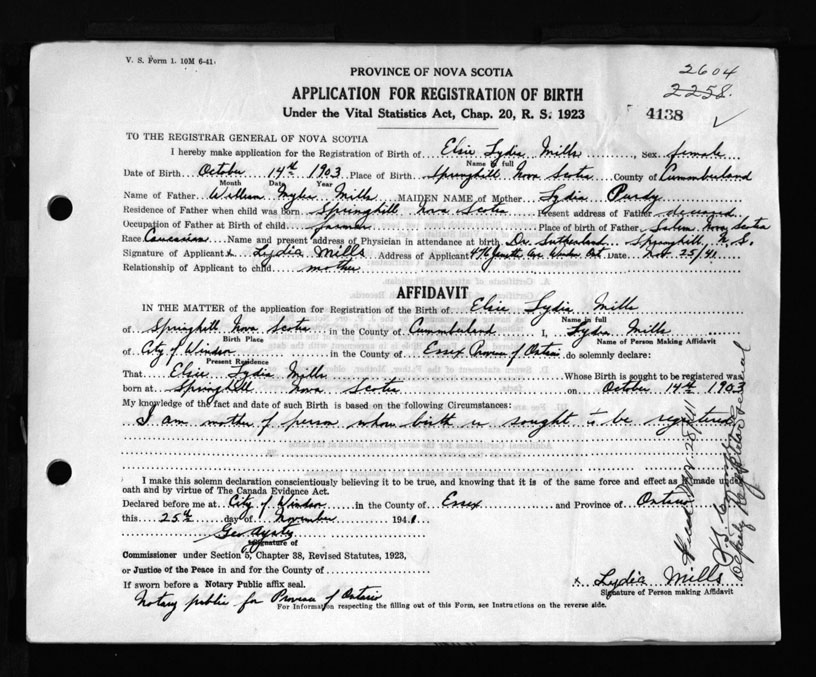 V. S. Form 1. 10M 6-41.
PROVINCE OF NOVA SCOTIA
2604
APPLICATION FOR REGISTRATION OF BIRTH
2258.
Under the Vital Statistics Act, Chap. 20, R. S. 1923
4138
TO THE REGISTRAR GENERAL OF NOVA SCOTIA
I hereby make application for the Registration of Birth of Elsie Lydia Mills, Sex female
Name in full
Date of Birth October 14th 1903 Place of Birth Springhill Nova Scotia County of Cummberland
Month Date Year
Name of Father William Mills MAIDEN NAME of Mother Lydia Purdy
Residence of Father when child was born Springhill Nova Scotia Present address of Father deceased
Occupation of Father at Birth of child farmer Place of birth of Father Salem Nova Scotia
Race Caucasian Name and present address of Physician in attendance at birth Dr. Sutherland Springhill, N. S.
Signature of Applicant x Lydia Mills Address of Applicant Ave. Windsor Ont. Date Nov. 25/41
Relationship of Applicant to child mother
AFFIDAVIT
IN THE MATTER of the application for Registration of the Birth of Elsie Lydia Mills
Name in full
of Springhill Nova Scotia in the County of Cummberland I, Lydia Mills
Birth Place Name of Person Making Affidavit
of City of Windsor in the County of Essex Province of Ontario do solemnly declare:
Present Residence
That Elsie Lydia Mills Whose Birth is sought to be registered was
born at Springhill Nova Scotia on October 14th 1903
My knowledge of the fact and date of such Birth is based on the following Circumstances:
I am mother of person whose birth is sought to be registered
I make this solemn declaration conscientiously believing it to be true, and knowing that it is of the same force and effect as if made under
oath and by virtue of The Canada Evidence Act.
Declared before me at City of Windsor in the County of Essex and Province of Ontario
this 25th day of November 1941
Geo.
Signature of
Commissioner under Section 5, Chapter 38, Revised Statutes, 1923,
or Justice of the Peace in and for the County of
If sworn before a Notary Public affix seal.
x Lydia Mills
Signature of Person making Affidavit
Notary public for Province of Ontario
For Information respecting the filling out of this Form, see Instructions on the reverse side.
Nov. 28/41
Deputy Registrar General